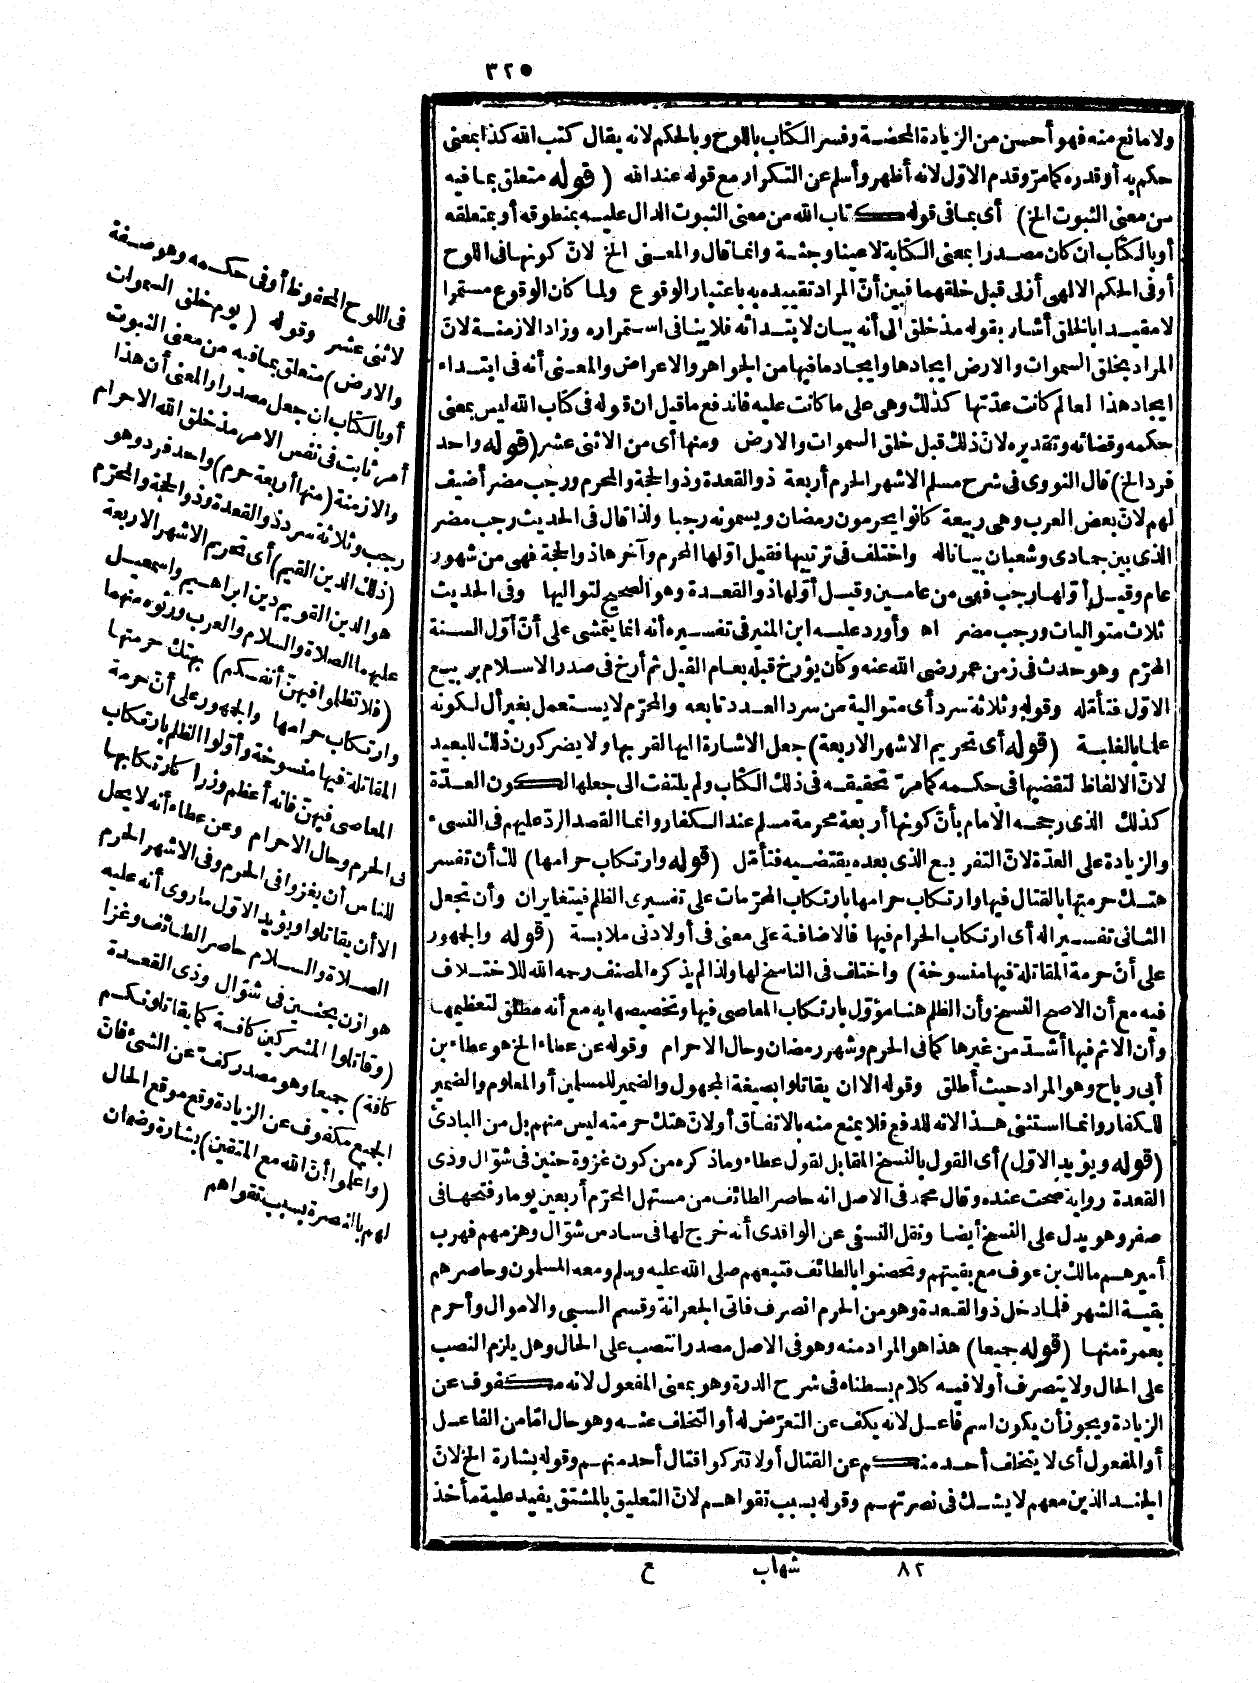 ٣٢٥
ولا مانع منه فهو أحسن من الزيادة المحضة وفسر الكتاب باللوح وبالحكم لانه يقال كتب الله كذا بمعنى
حكم به أو قدره كما مرّ وقدم الاوّل لانه أظهر وأسلم عن التكرار مع قوله عند الله (قوله متعلق بما فيه
من معنى الثبوت الخ) أى بما فى قوله كتاب الله من معنى الثبوت الدال عليه بمنطوقه أو بمتعلقه
أو بالكتاب ان كان مصدرا بمعنى الكتابة لا عينا وجثة وانما قال والمعنى الخ لانّ كونها فى اللوح
أو فى الحكم الالهى أزلى قبل خلقهما فبين أنّ المراد تقييده به باعتبار الوقوع ولما كان الوقوع مستمرا
لا مقيدا بالخلق أشار بقوله مذ خلق الى أنه بيان لابتدائه فلا ينافى استمراره وزاد الازمنة لانّ
المراد بخلق السموات والارض ايجادها وايجاد ما فيها من الجواهر والاعراض والمعنى أنه فى ابتداء
ايجاد هذا العالم كانت عدّتها كذلك وهى على ما كانت عليه فاندفع ما قيل ان قوله فى كتاب الله ليس بمعنى
حكمه وقضائه وتقديره لانّ ذلك قبل خلق السموات والارض ومنها أى من الاثنى عشر (قوله واحد
فرد الخ) قال النووى فى شرح مسلم الاشهر الحرم أربعة ذو القعدة وذو الحجة والمحرم ورجب مضر أضيف
لهم لانّ بعض العرب وهى ربيعة كانوا يحرمون رمضان ويسمونه رجبا ولذا قال فى الحديث رجب مضر
الذى بين جمادى وشعبان بيانا له واختلف فى ترتيبها فقيل اوّلها المحرم وآخرها ذو الحجة فهى من شهور
عام وقيل أوّلها رجب فهى من عامين وقيل أوّلها ذو القعدة وهو الصحيح لتواليها وفى الحديث
ثلاث متواليات ورجب مضر اه وأورد عليه ابن المنير فى تفسيره أنه انما يتمشى على أنّ أوّل السنة
المحرّم وهو حدث فى زمن عمر رضى الله عنه وكان يؤرخ قبله بعام الفيل ثم أرخ فى صدر الاسلام بربيع
الاوّل فتأمّله وقوله وثلاثة سرد أى متوالية من سرد العدد تابعه والمحرّم لا يستعمل بغير أل لكونه
علما بالغلبة (قوله أى تحريم الاشهر الاربعة) جعل الاشارة اليها لقربها ولا يضر كون ذلك للبعيد
لانّ الالفاظ لتقضيها فى حكمه كما مرّ تحقيقه فى ذلك الكتاب ولم يلتفت الى جعلها لكون العدّة
كذلك الذى رجحه الامام بأنّ كونها أربعة محرمة مسلم عند الكفار وانما القصد الردّ عليهم فى النسىء
والزيادة على العدّة لانّ التفريع الذى بعده يقتضيه فتأمّل (قوله وارتكاب حرامها) لك أن تفسر
هتك حرمتها بالقتال فيها وارتكاب حرامها بارتكاب المحرّمات على تفسيرى الظلم فيتغايران وأن تجعل
الثانى تفسيرا له أى ارتكاب الحرام فيها فالاضافة على معنى فى أو لادنى ملابسة (قوله والجمهور
على أنّ حرمة المقاتلة فيها منسوخة) واختلف فى الناسخ لها ولذا لم يذكره المصنف رحمه الله للاختلاف
فيه مع أن الاصح النسخ وأن الظلم هنا مؤوّل بارتكاب المعاصى فيها وتخصيصها به مع أنه مطلق لتعظيمها
وأن الاثم فيها أشدّ من غيرها كما فى الحرم وشهر رمضان وحال الاحرام وقوله عن عطاء الخ هو عطاء بن
أبى رباح وهو المراد حيث أطلق وقوله الا ان يقاتلوا بصيغة المجهول والضمير للمسلمين أو المعلوم والضمير
للكفار وانما استثنى هذا لانه للدفع فلا يمنع منه بالاتفاق أو لانّ هتك حرمته ليس منهم بل من البادئ
(قوله ويؤيد الاوّل) أى القول بالنسخ المقابل لقول عطاء وما ذكره من كون غزوة حنين فى شوّال وذى
القعدة رواية صحت عنده وقال محمد فى الاصل انه حاصر الطائف من مستهل المحرّم أربعين يوما وفتحها فى
صفر وهو يدل على النسخ أيضا ونقل النسفى عن الواقدى أنه خرج لها فى سادس شوّال وهزمهم فهرب
أميرهم مالك بن عوف مع بقيتهم وتحصنوا بالطائف فتبعهم صلى الله عليه وسلم ومعه المسلمون وحاصرهم
بقية الشهر فلما دخل ذو القعدة وهو من الحرم انصرف فاتى الجعرانة وقسم السبى والاموال وأحرم
بعمرة منها (قوله جميعا) هذا هو المراد منه وهو فى الاصل مصدر انتصب على الحال وهل يلزم النصب
على الحال ولا يتصرف أو لا فيه كلام بسطناه فى شرح الدرة وهو بمعنى المفعول لانه مكفوف عن
الزيادة ويجوز أن يكون اسم فاعل لانه يكف عن التعرّض له أو التخلف عنه وهو حال امّا من الفاعل
أو المفعول أى لا يتخلف أحد منكم عن القتال أو لا تتركوا قتال أحد منهم وقوله بشارة الخ لانّ
الجند الذين معهم لا يشك فى نصرتهم وقوله بسبب تقواهم لانّ التعليق بالمشتق يفيد علية مأخذ
فى اللوح المحفوظ أو فى حكمه وهو صفة
لاثنى عشر وقوله (يوم خلق السموات
والارض) متعلق بما فيه من معنى الثبوت
أو بالكتاب ان جعل مصدرا والمعنى أن هذا
أمر ثابت فى نفس الامر مذ خلق الله الاجرام
والازمنة (منها أربعة حرم) واحد فرد وهو
رجب وثلاثة سرد ذو القعدة وذو الحجة والمحرّم
(ذلك الدين القيم) أى تحريم الاشهر الاربعة
هو الدين القويم دين ابراهيم واسمعيل
عليهما الصلاة والسلام والعرب ورثوه منهما
(فلا تظلموا فيهنّ أنفسكم) بهتك حرمتها
وارتكاب حرامها والجمهور على أنّ حرمة
المقاتلة فيها منسوخة وأوّلوا الظلم بارتكاب
المعاصى فيهنّ فانه أعظم وزرا كارتكابها
فى الحرم وحال الاحرام وعن عطاء أنه لا يحل
للناس أن يغزوا فى الحرم وفى الاشهر الحرم
الا أن يقاتلوا ويؤيد الاوّل ما روى أنه عليه
الصلاة والسلام حاصر الطائف وغزا
هوازن بحنين فى شوّال وذى القعدة
(وقاتلوا المشركين كافة كما يقاتلونكم
كافة) جميعا وهو مصدر كفّ عن الشئ فانّ
الجميع مكفوف عن الزيادة وقع موقع الحال
(واعلموا أنّ الله مع المتقين) بشارة وضمان
لهم بالنصرة بسبب تقواهم
٨٢ شهاب ع